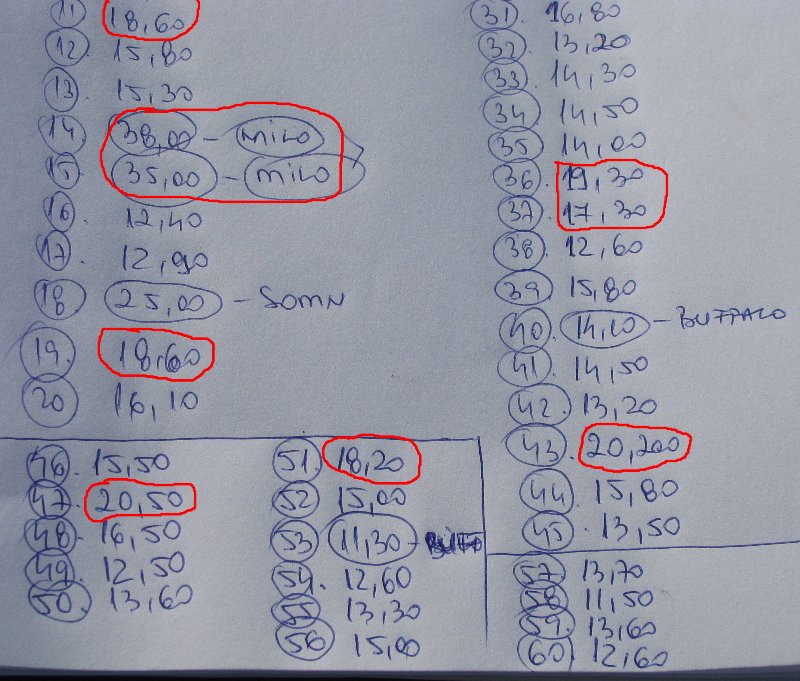 11. 18,60
12. 15,80
13. 15,30
14. 38,00 - MILO
15. 35,00 - MILO
16. 12,40
17. 12,90
18. 25,00 - SOMN
19. 18,60
20 16,10
31. 16,80
32. 13,20
33. 14,30
34. 14,50
35. 14,00
36. 19,30
37. 17,30
38. 12,60
39. 15,80
40. 14,10 - BUFFALO
41. 14,50
42. 13,20
43. 20,200
44. 15,80
45. 13,50
46. 15,50
47. 20,50
48. 16,50
49. 12,50
50. 13,60
51. 18,20
52. 15,00
53. 11,30 - BUFF
54. 12,60
55. 13,30
56 15,00
57. 13,70
58. 11,50
59. 13,60
60. 12,60